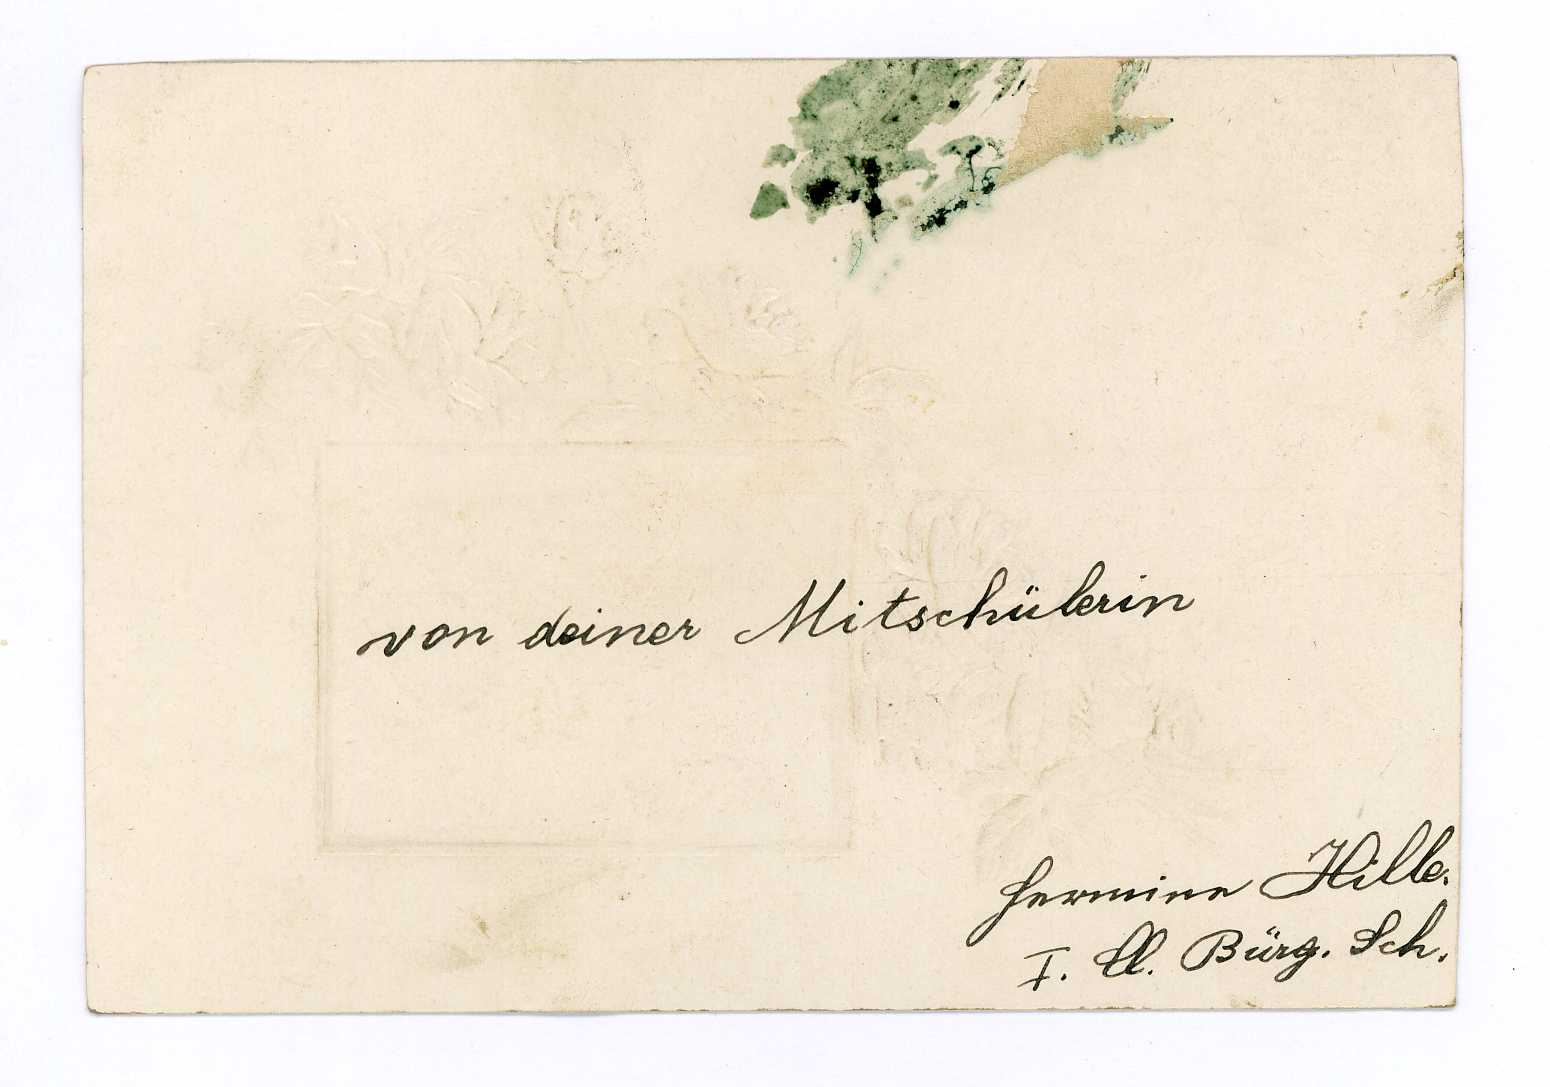 von deiner Mitschülerin
Hermine Hille.
I. Cl. Bürg. Sch.